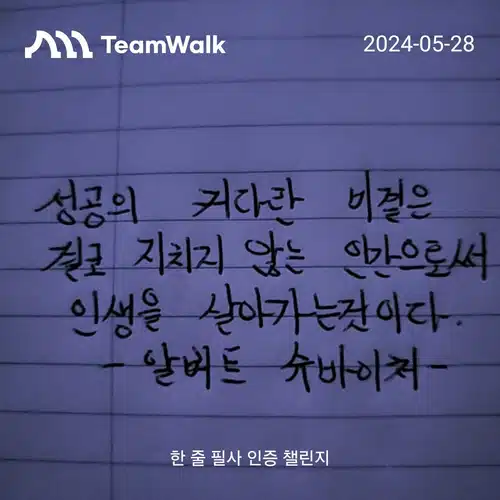 TeamWalk
2024-05-28
성공의 커다란 비결은
결코 지치지 않는 인간으로써
인생을 살아가는것이다.
- 알버트 슈바이처 -
한 줄 필사 인증 챌린지